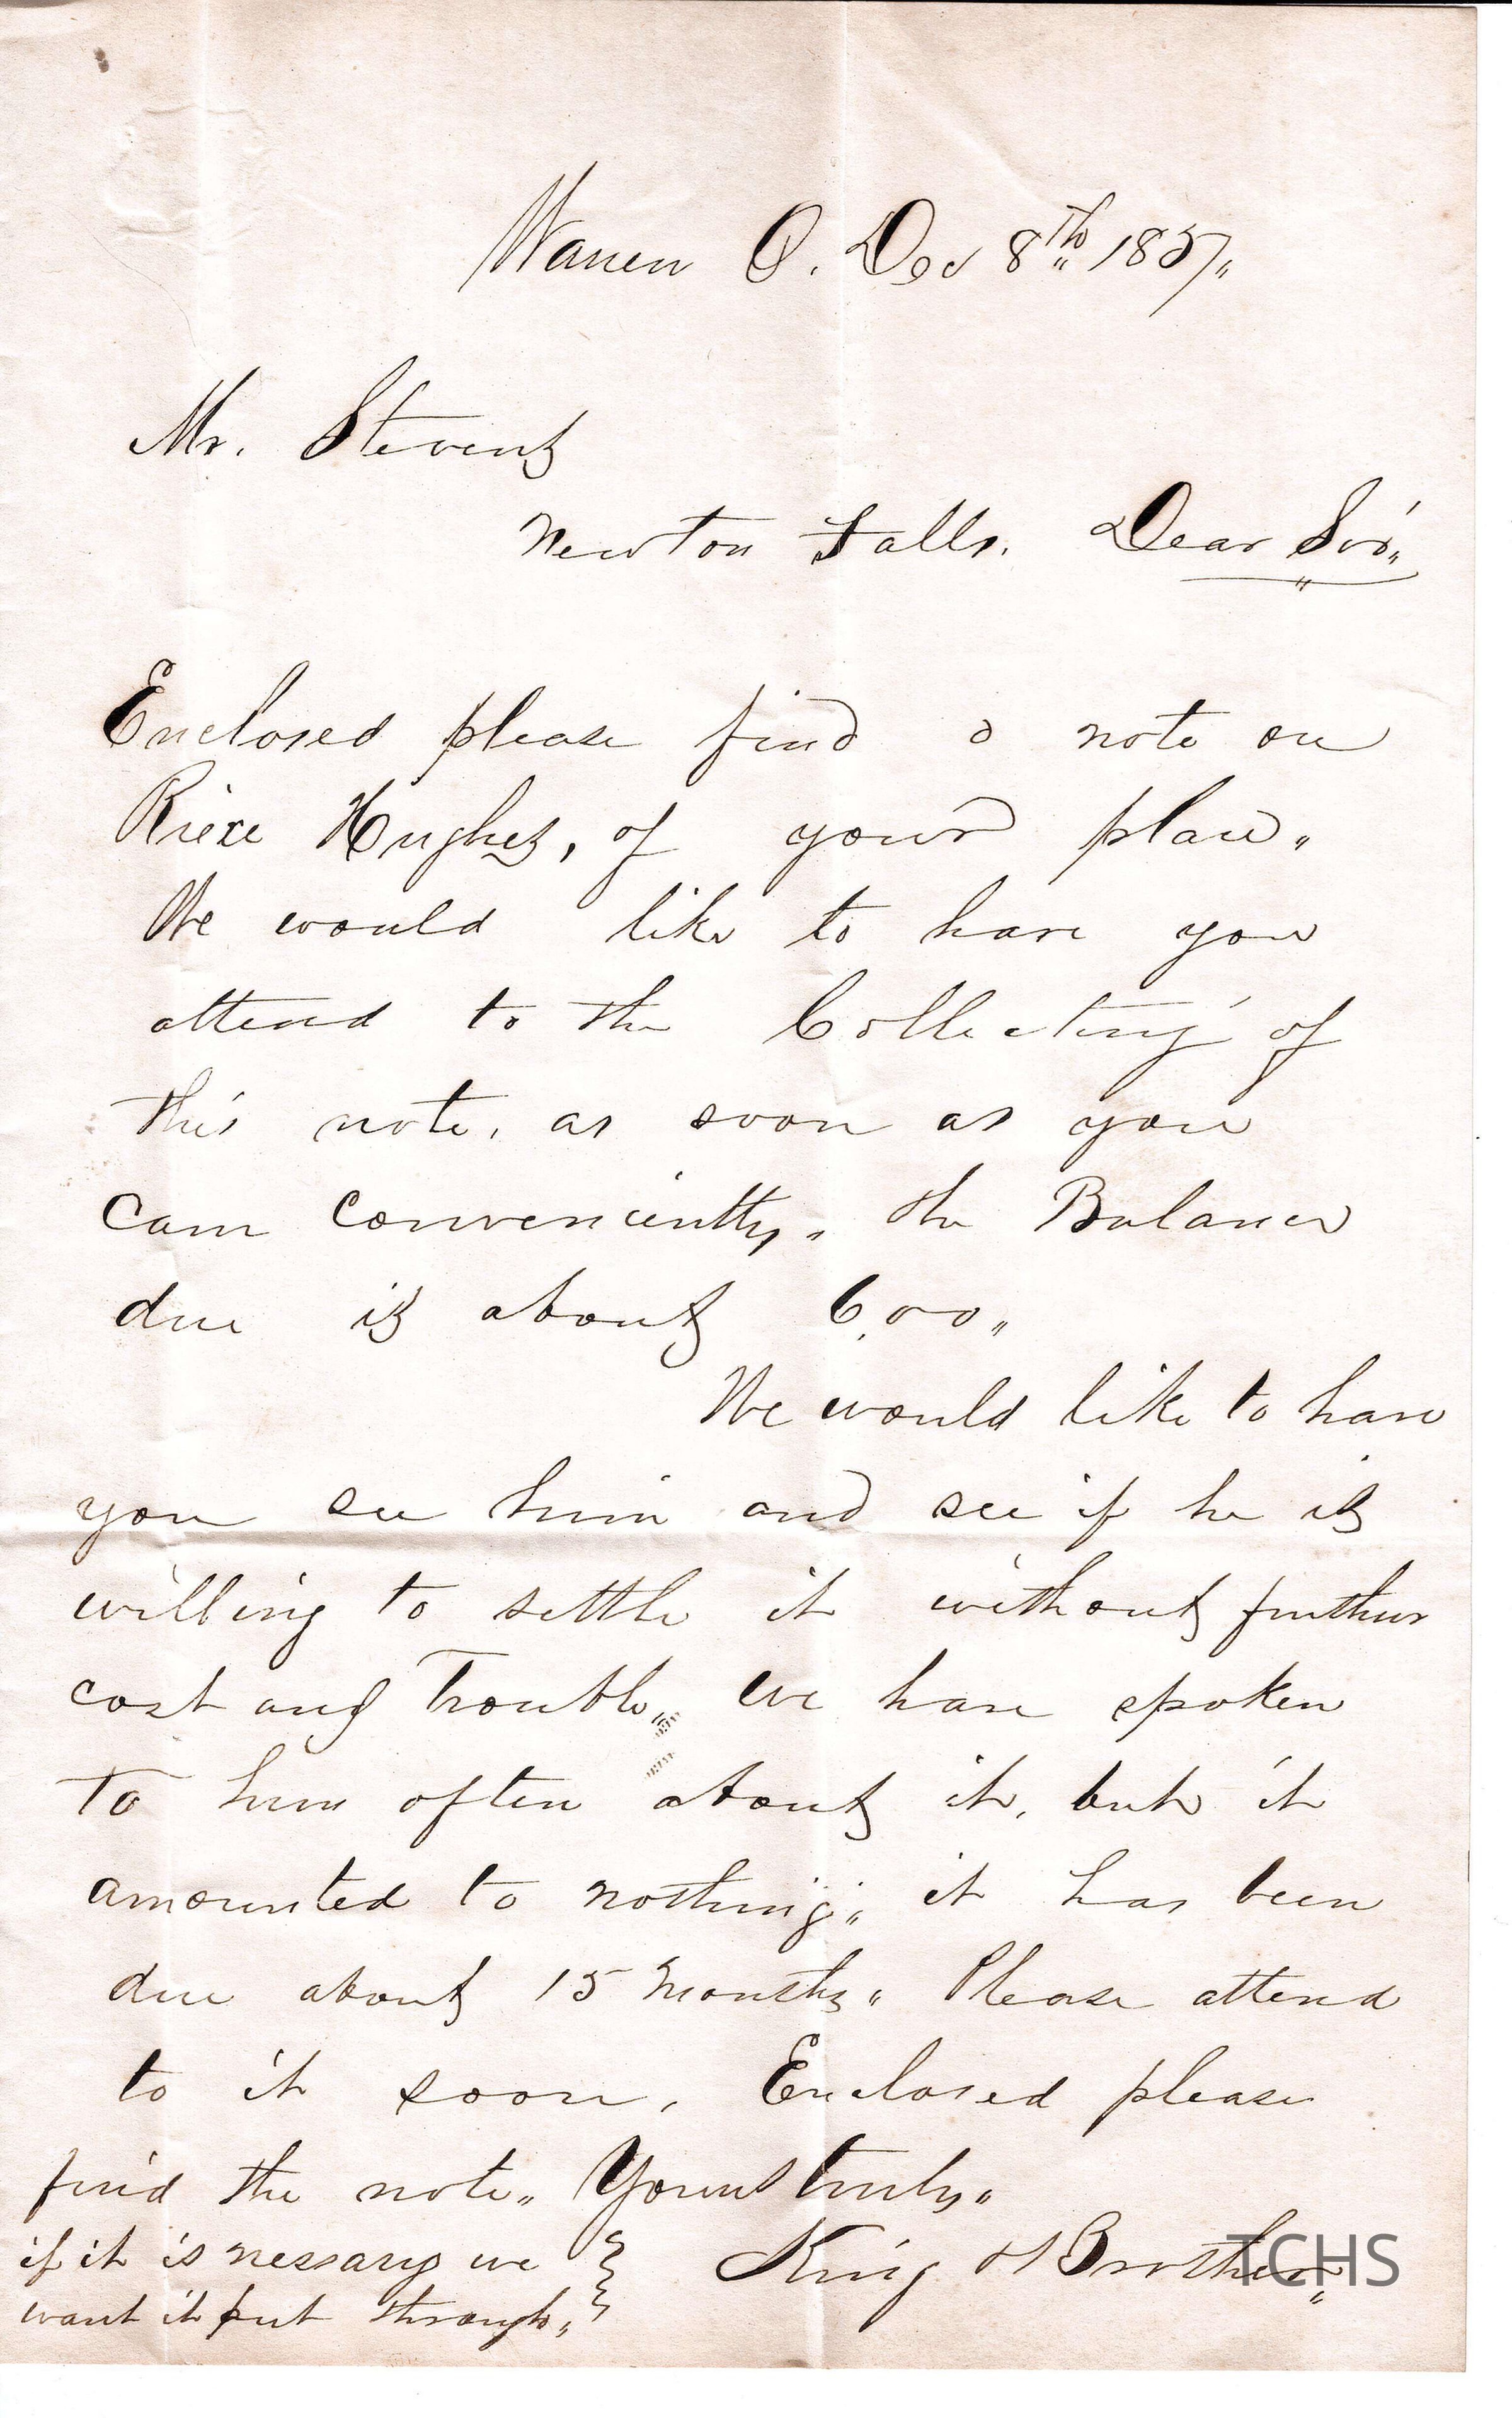 Warren O. Dec 8th 1857
Mr. Stevens
Newton Falls. Dear Sir
Enclosed please find a note on
Hughes, of your place
We would like to have you
attend to the Collecting of
this note, as soon as you
can conveniently. the Balance
due is about 6.00
We would like to have
you see him and see if he is
willing to settle it without further
cost and Trouble. We have spoken
To him often about it, but it
amounted to nothing. it has been
due about 15 months. Please attend
to it soon. Enclosed please
find the note. Yours truly
if it is nessary we
want it put through
King & Brother
TCHS